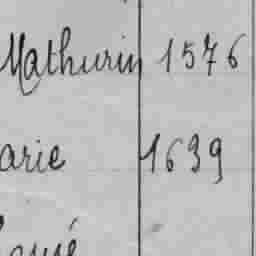 Mathurin 1576
arie 1639